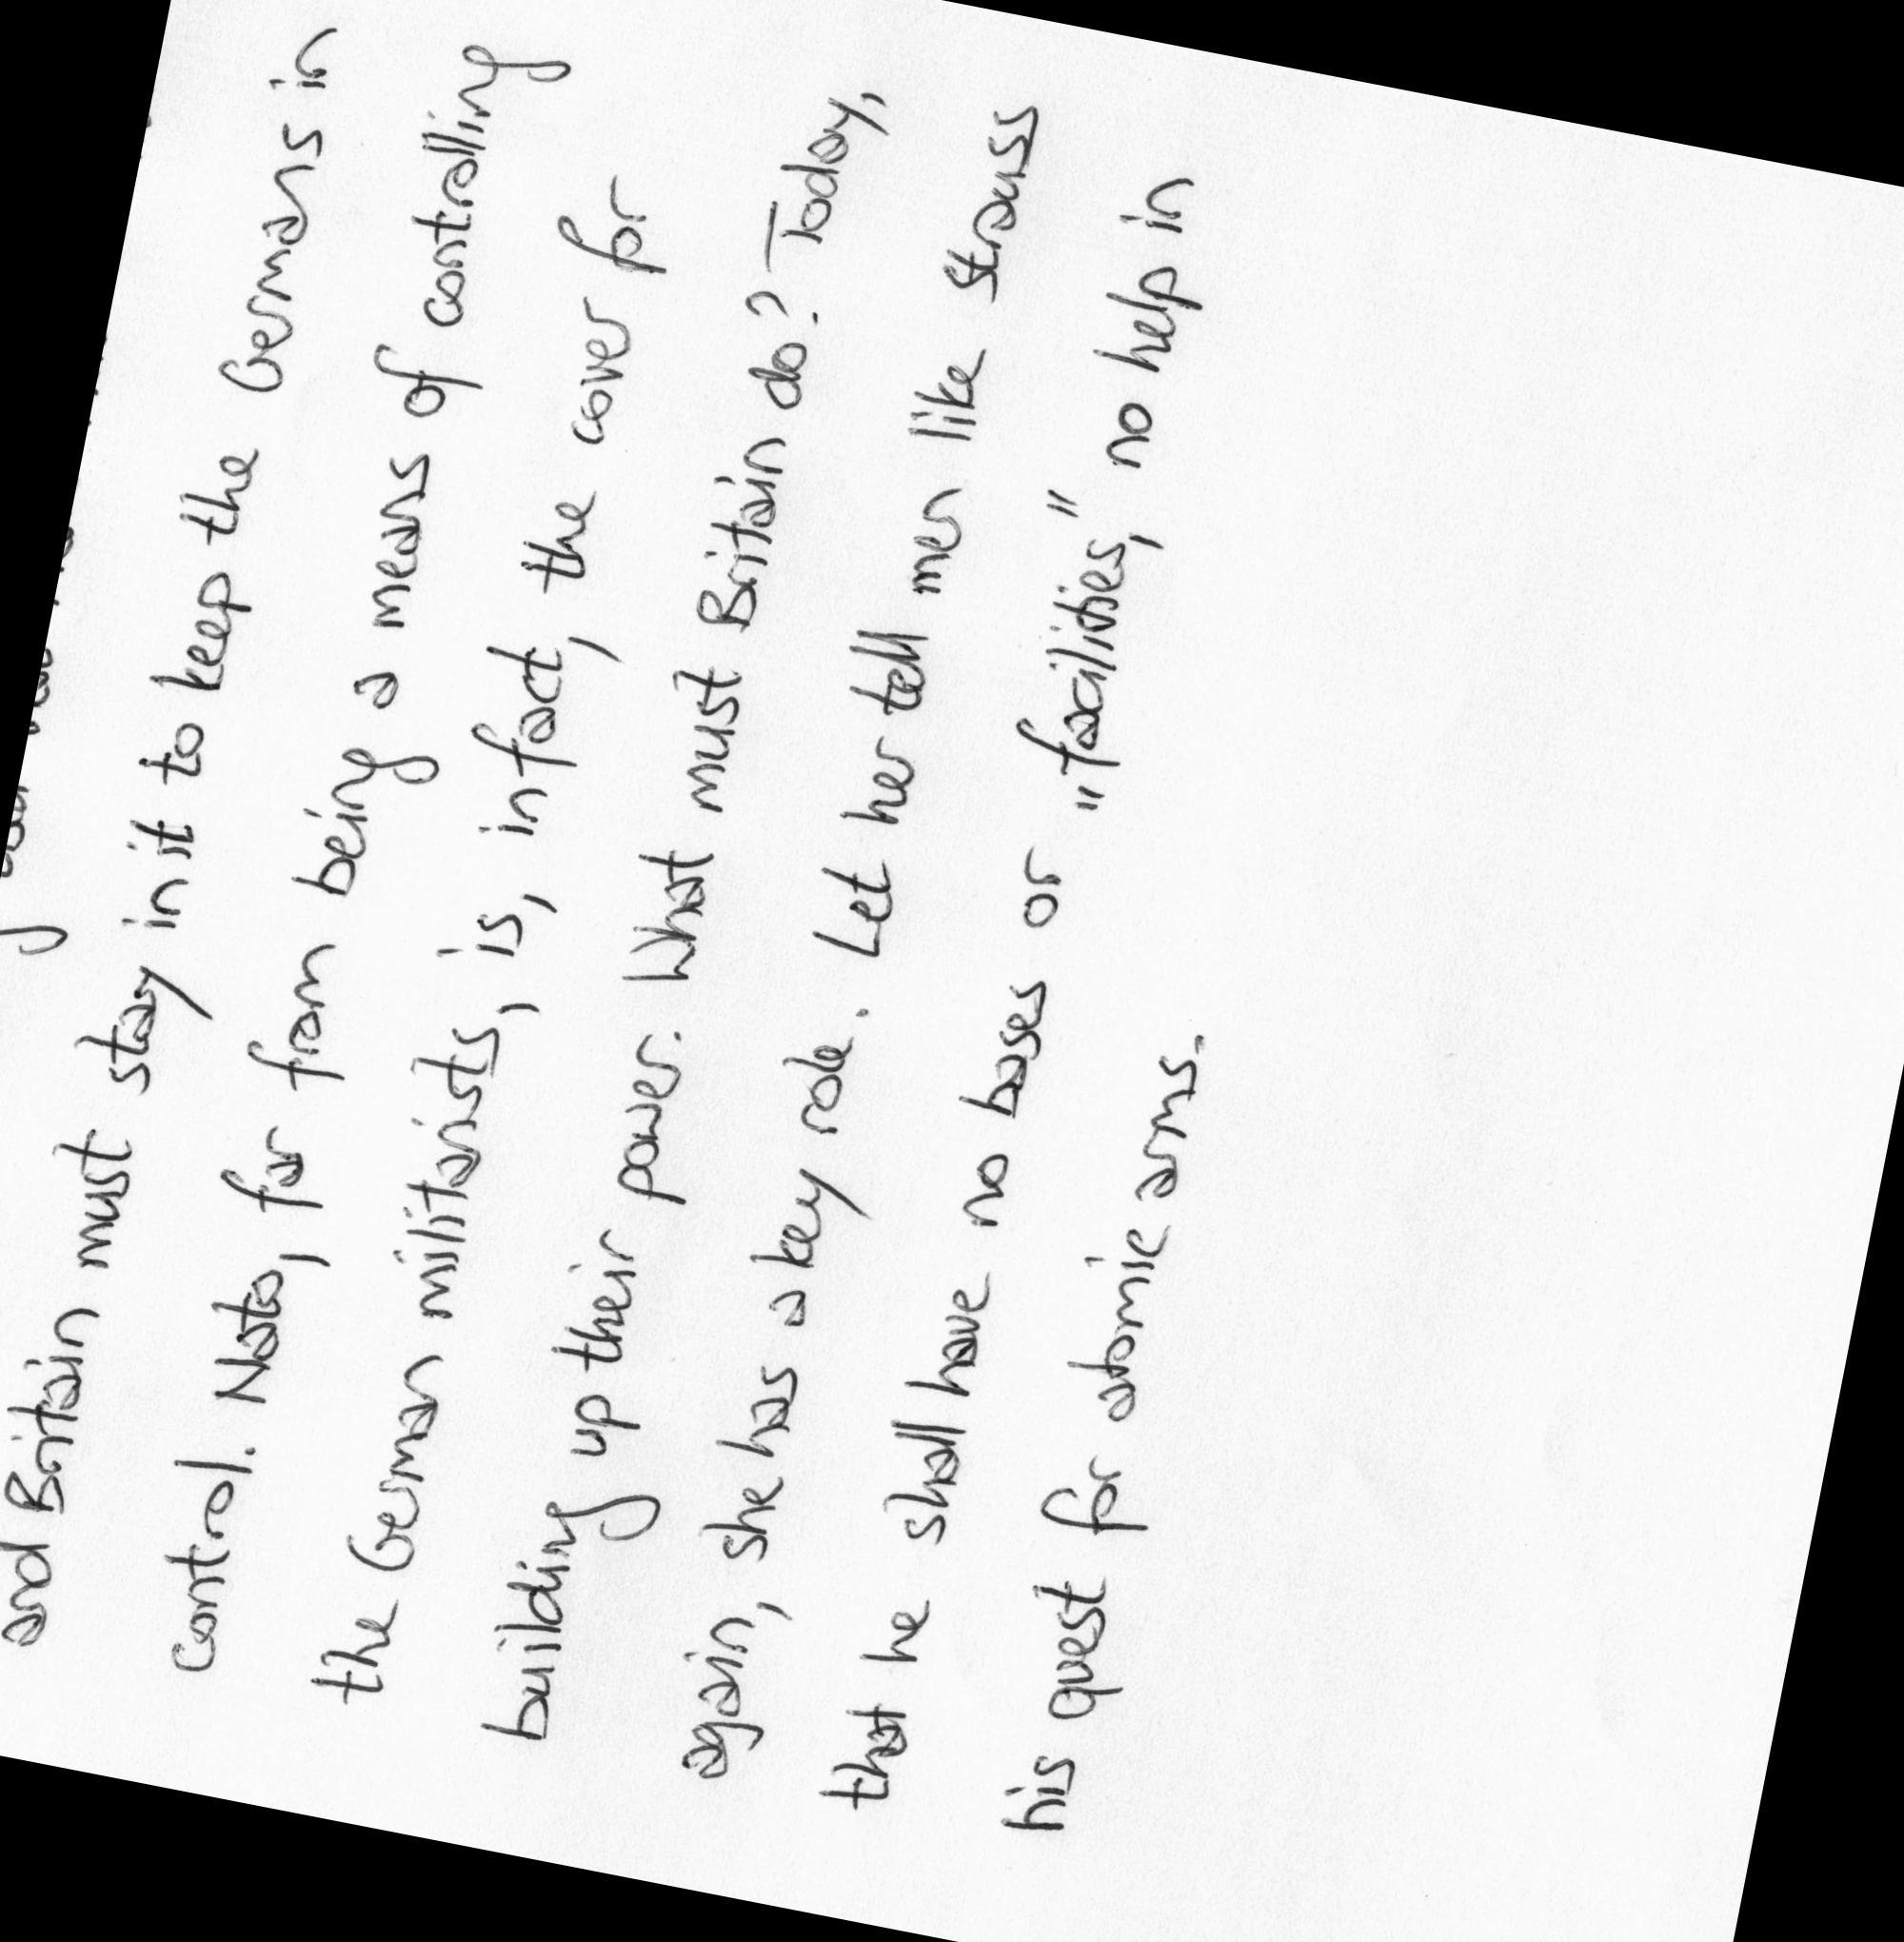 and Britain must stay in it to keep the Germans in
control. Nato, far from being a means of controlling
the German militarists, is, in fact, the cover for
building up their power. What must Britain do? Today,
again, she has a key role. Let her tell men like Strauss
that he shall have no bases or "facilities," no help in
his quest for atomic arms.